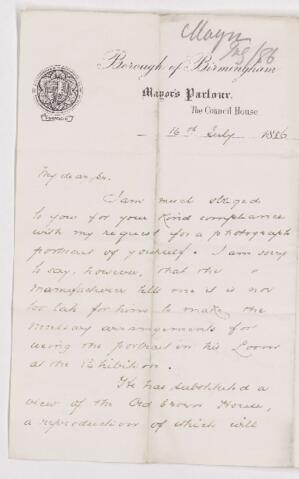 Mayn
Borough of Birmingham
Mayor's Parlour.
The Council House
16th July 1886
FORWARD
My dear Sir.
I am much obliged
to you for your kind compliance
with my request for a photograph
portrait of yourself. I am sorry
to say, however, that the
manufacturer tells me it is now
too late for him to make the
necessary arrangements for
using the portrait in his Loom
at the Exhibition.
He has substituted a
view of the Old Crown House,
a reproduction of which will